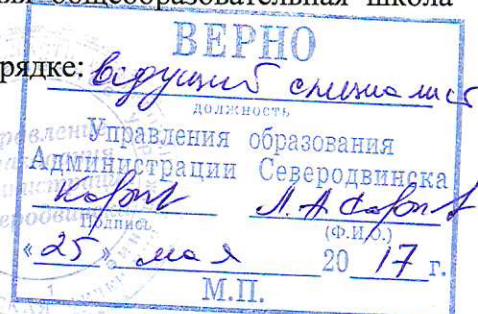 общеобразовательная школа
рядке:
ВЕРНО
ведущий специалист
должность
Управления образования
Администрации Северодвинска
Подпись
(Ф.И.О.)
« 25 » мая 20 17 г.
М.П.